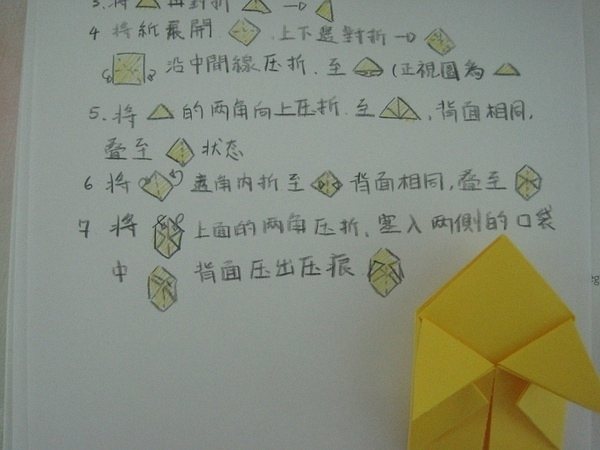 3. 將 再對折
4 將紙展開 . 上下邊對折
沿中間線压折. 至 (正視圖為
5. 將 的两角向上压折. 至 , 背面相同,
叠至 状态
6 將 角内折至 背面相同, 叠至
7 將 上面的两角压折. 塞入两侧的口袋
中 背面压出压痕